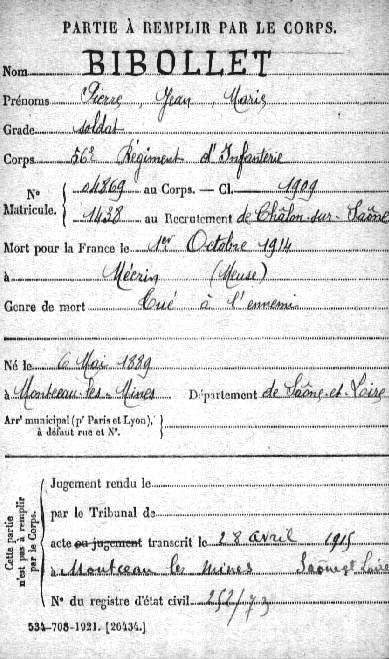 PARTIE À REMPLIR PAR LE CORPS.
Nom BIBOLLET
Prénoms Pierre Jean Marie
Grade soldat
Corps 56e Régiment d'Infanterie
N° Matricule. { 04869 au Corps. — Cl. 1909
1438 au Recrutement de Châlon-sur-Saône
Mort pour la France le 1er Octobre 1914
à Mécrin (Meuse)
Genre de mort Tué à l'ennemi
Né le 6 Mai 1889
à Montceau-les-Mines Département de Saône-et-Loire
Arrt municipal (pr Paris et Lyon), à défaut rue et N°.
Cette partie n'est pas à remplir par le Corps.
Jugement rendu le
par le Tribunal de
acte ou jugement transcrit le 28 avril 1915
à Montceau les mines Saone et Loire
N° du registre d'état civil 252/73
534-708-1921. [26434.]